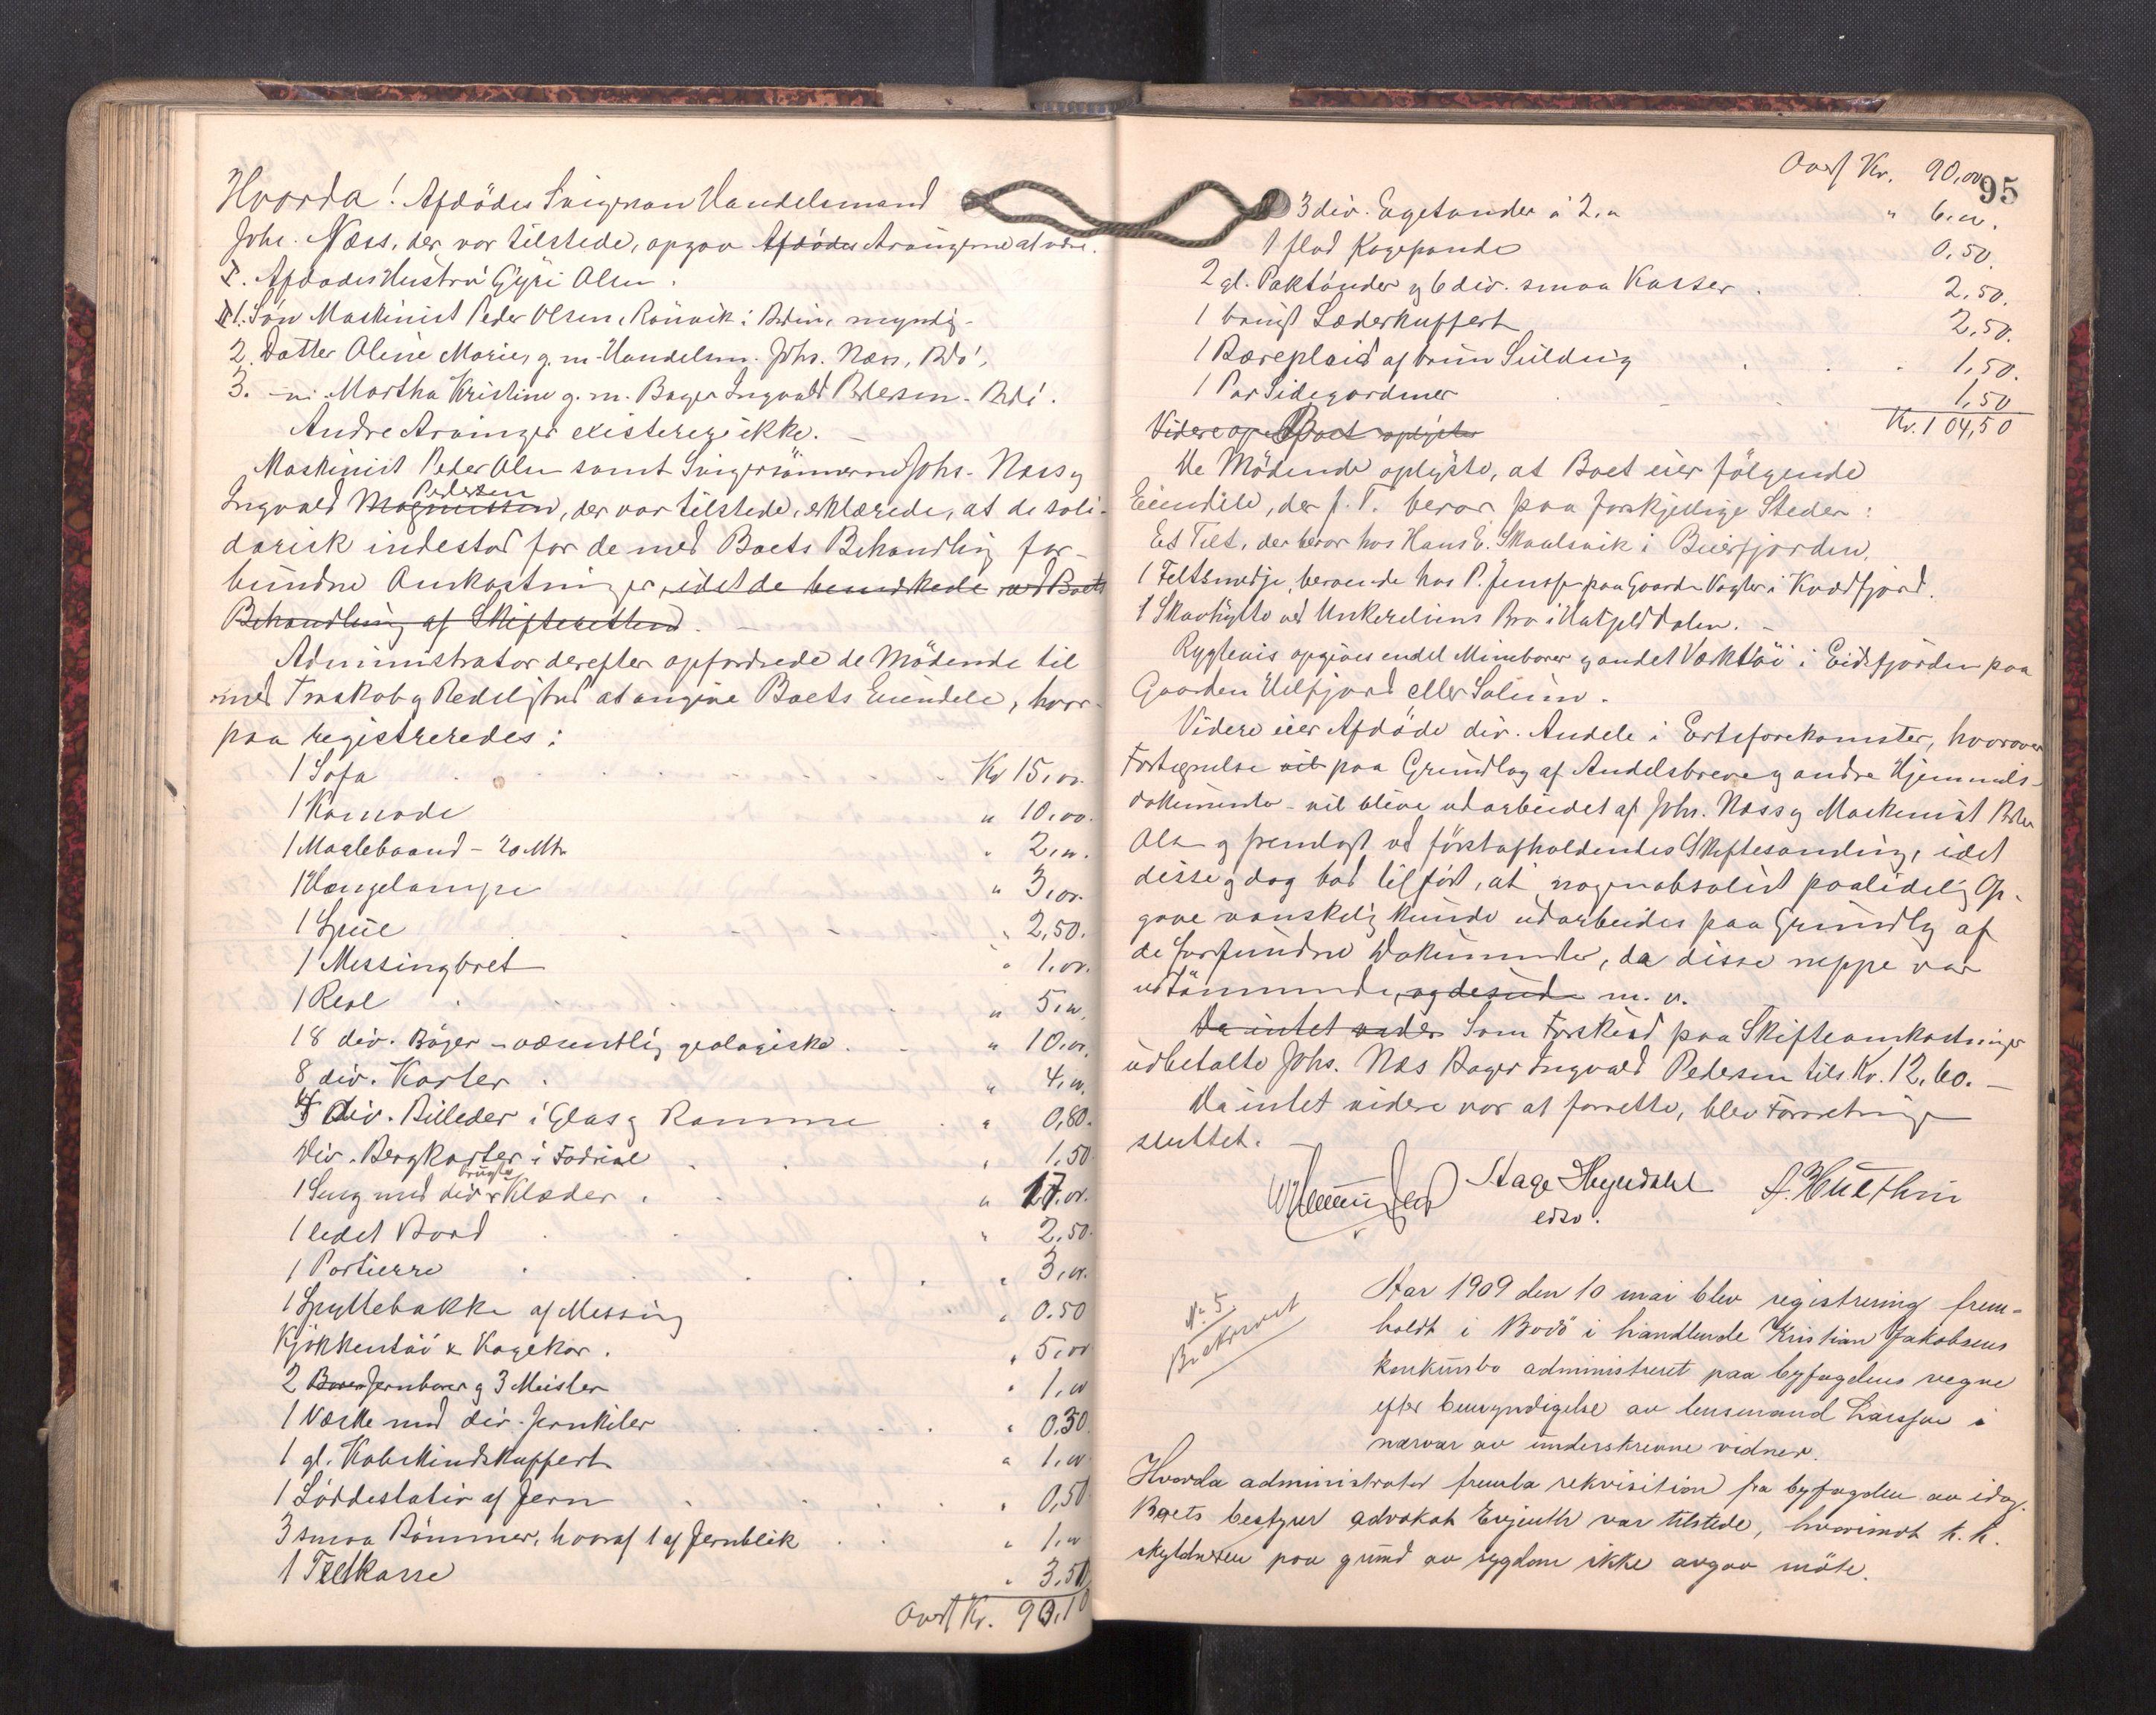 Hvorda! Afdödes Svigersøn Handelsmand
Johs. Næss, der var tilstede, opgav Afdødes Arvingerne at være:
I. Afdødes Hustru Gyri Olsen.
II 1. Søn Maskinist Peder Olsen, Rönvik i Bodin, myndig.
2. Datter Oline Marie, g. m. Handelsm. Johs. Næss, Bdö,
3. — Martha Kristine g. m. Bager Ingvald Pedersen - Bdö.
Andre Arvinger existerer ikke. —
Maskinist Peder Olsen samt Svigersönnerne Johs. Næss og
Pedersen
Ingvald Magnussen, der var tilstede, erklærede, at de soli-
darisk indestod for de med Boets Behandling for-
bundne Omkostninger, idet de begjærede Boets
Behandling af Skifteretten. —
Administrator derefter opfordrede de Mödende til
med Troskab og Redelighed at angive Boets Eiendele, hvor-
paa registreredes:
1 Sofa Kr 15,00.
1 Komode " 10,00.
1 Maalebaand - 20 Mtr " 2,00.
1 Hængelampe " 3,00.
1 Speil " 2,50.
1 Messingbret " 1,00.
1 Reol " 5,00.
18 div. Böger - væsentlig geologiske. " 10,00.
8 div. Karter. " 4,00.
4 div. Billeder i Glas og Ramme " 0,80.
Div. Bergkarter i Fodral " 1,50
brugte
1 Seng med div. Klæder. " 17,00.
1 ledet Bord " 2,50.
1 Portierre " 3,00.
1 Spyttebakke af Messing " 0.50
Kjökkentöi & Kogekar. " 5,00
2 Borer Jernborer og 3 Meisler " 1,00
1 Væske med div. Jernkiler " 0.30
1 gl. Kobskindskuffert " 1,00
1 Loddestativ af Jern " 0,50
3 smaa Bömmer, hvoraf 1 af Jernblik " 1,00
1 Teltkasse " 3.50
Overf Kr. 90,10
Overf Kr. 90,00
95
3 div. Egetønder à 2,00 " 6,00.
1 flad Kagepande 0,50.
2 gl. Paktönder og 6 div. smaa Kasser. 2,50.
1 brugt Læderkuffert 2,50.
1 Bæreplaid af brun Seildug 1,50.
1 Par Sidegardiner 1,50
Kr. 104,50
Videre op Boet oplyste
De Mödende oplyste, at Boet eier fölgende
Eiendele, der p. T. beror paa forskjellige Steder:
Et Telt, der beror hos Hans E. Skaalsvik i Beierfjorden,
1 Feltsmedje, beroende hos P. Jenssen paa Gaarden Vagler i Kvædfjord.
1 Skovhytte ved Unkerelvens Bro i Hatfjelddalen. —
Rygtevis opgives endel Mineborer og andet Værktöi i Eidsfjorden paa
Gaarden Helfjord eller Solum.
Videre eier Afdöde div. Andele i Ertsforekomster, hvorover
Fortegnelse vil paa Grundlag af Andelsbreve og andre Hjemmels-
dokumenter - vil blive udarbeidet af Johs. Næss og Maskinist Peder
Olsen og fremlagt ved förstafholdendes Skiftesamling, idet
disse dog bad tilfört, at nogen absolut paalidelig Op-
gave vanskelig kunde udarbeides paa Grundlag af
de forefundne Dokumenter, da disse neppe var
udtömmende, og desuden m. v.
Da intet videre Som Forskud paa Skifteomkostninger
udbetalte Johs. Næs Bager Ingvald Pedersen tils Kr. 12.60. —
Da intet videre var at forrette, blev Forretningen
sluttet. —
Hage Heyerdahl
edsv.
A. Hulthin
No. 5
Brækrevet
Aar 1909 den 10 mai blev registrering frem-
holdt i Bodö i handlende Kristian Jakobsens
konkursbo administreret paa byfogdens vegne
efter bemyndigelse av lensmand Larssen i
nærvær av underskrevne vidner.
Hvorda administrator fremla rekvisition fra byfogden av idag.
Boets bestyrer advokat Evjenth var tilstede, hvorimot k. k.
skyldneren paa grund av sygdom ikke avgav möte.